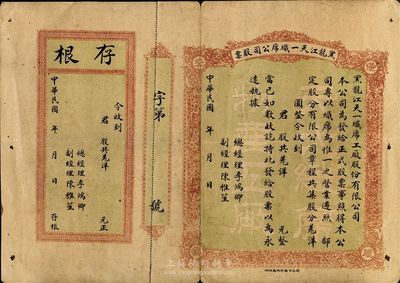 黑龍江天一織席公司股票
黑龍江天一織席工廠股份有限公司
本公司為發給正式股票事照得本公
司專以織席為惟一之營業遵照部
定股份有限公司章程共集股分羌洋
圓整今收到
君 股共羌洋 元整
當已如數收訖特此發給股票以為永
遠執據
總經理李鴻卿
副經理陳雅笙
中華民國 年 月 日
字第 號
存根
今收到
君 股共羌洋 元正
總經理李鴻卿
副經理陳雅笙
中華民國 年 月 日 存根